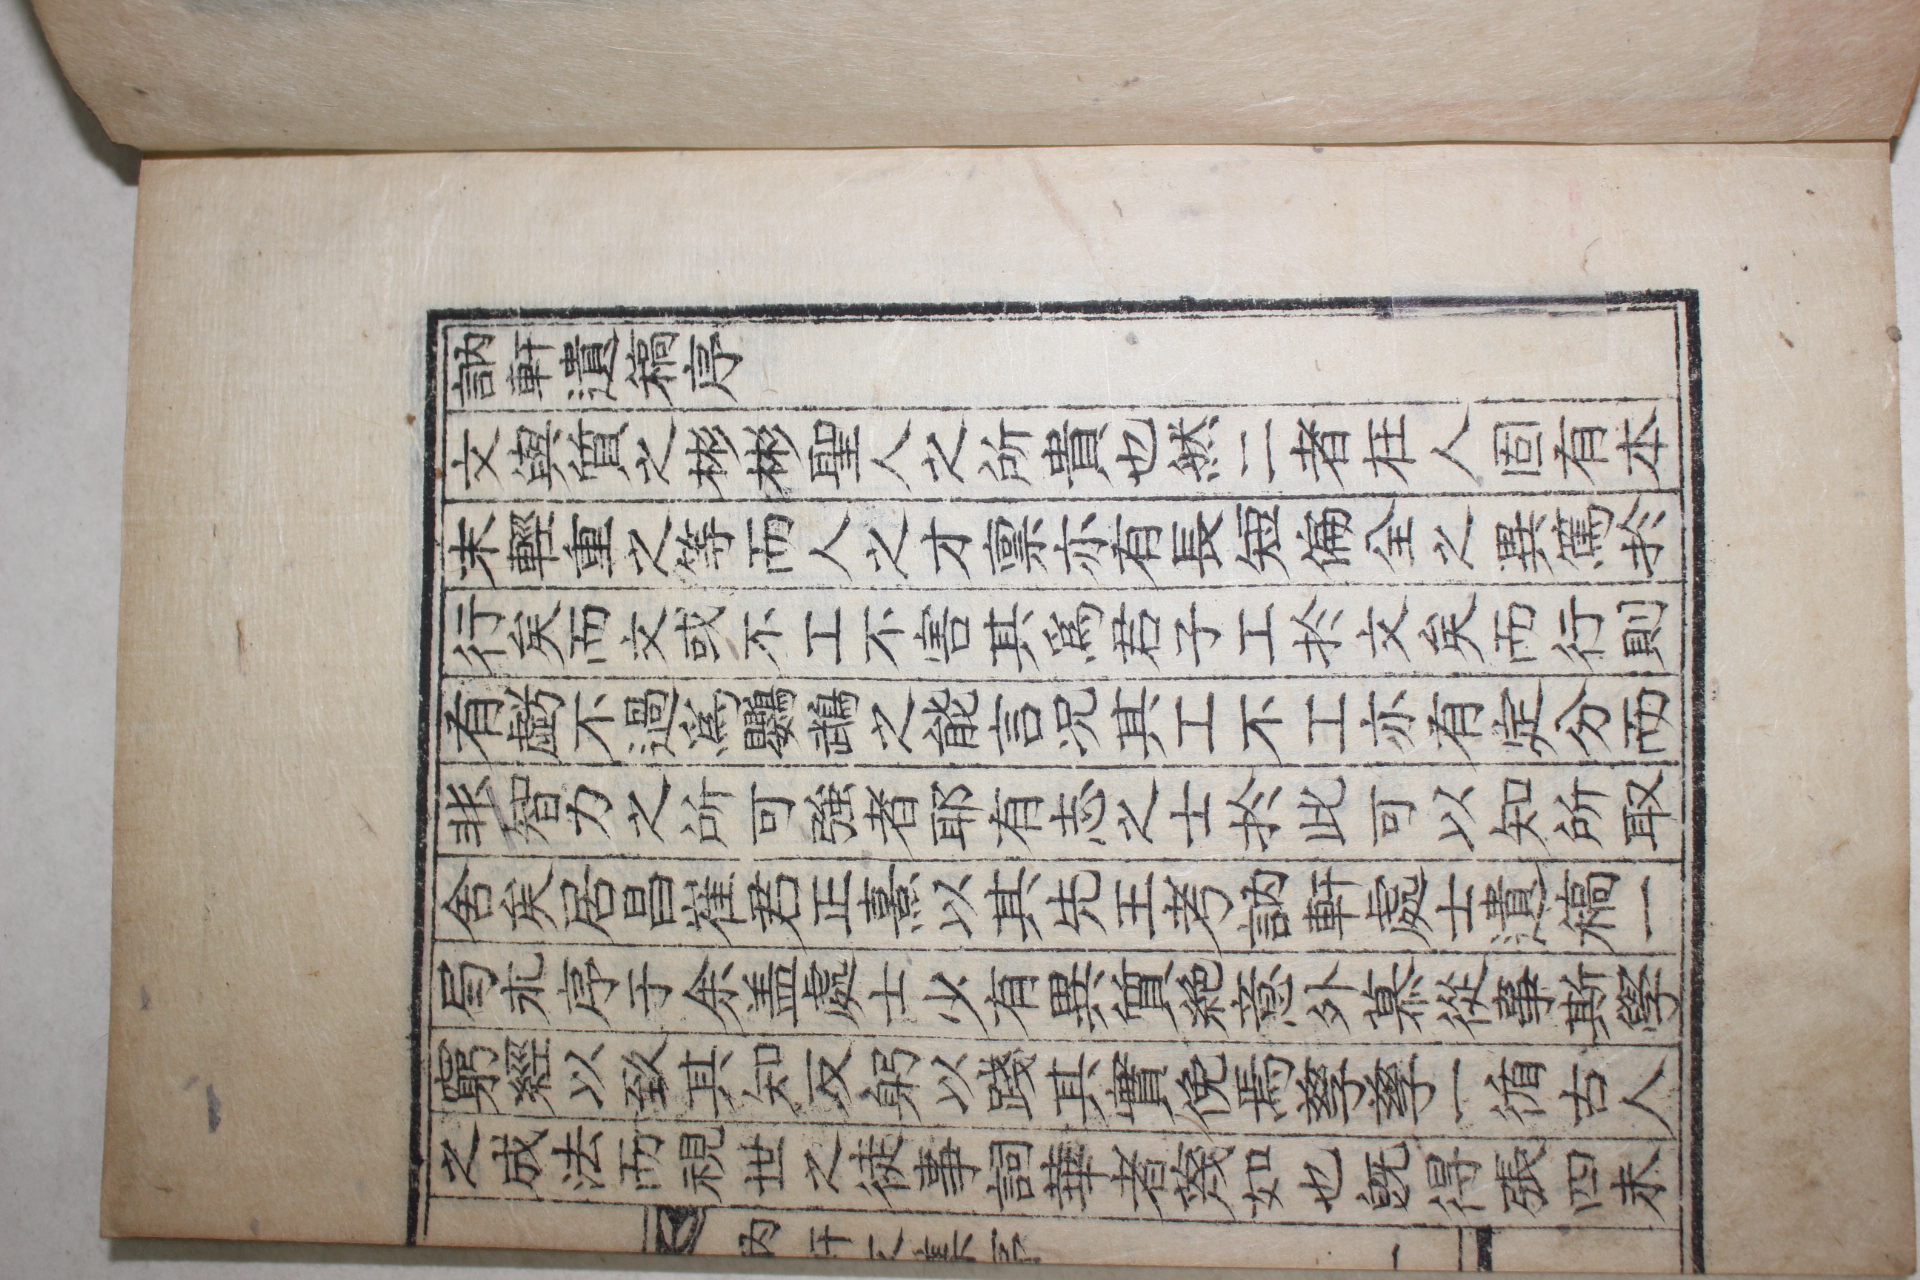 訥軒遺稿序
文與質之彬彬聖人之所貴也然二者在人固有本
末輕重之等而人之才稟亦有長短偏全之異篤於
行矣而文或不工不害其爲君子工於文矣而行則
有虧不過爲鸚鵡之能言况其工不工亦有定分而
非智力之所可強者耶有志之士於此可以知所取
舍矣居昌崔君正熹以其先王考訥軒處士遺稿一
局求序于余盖處士少有異質絶意外慕從事斯學
窮經以致其知反躬以踐其實俛焉孶孶一循古人
之成法而視世之徒事詞華者蔑如也旣得張四未